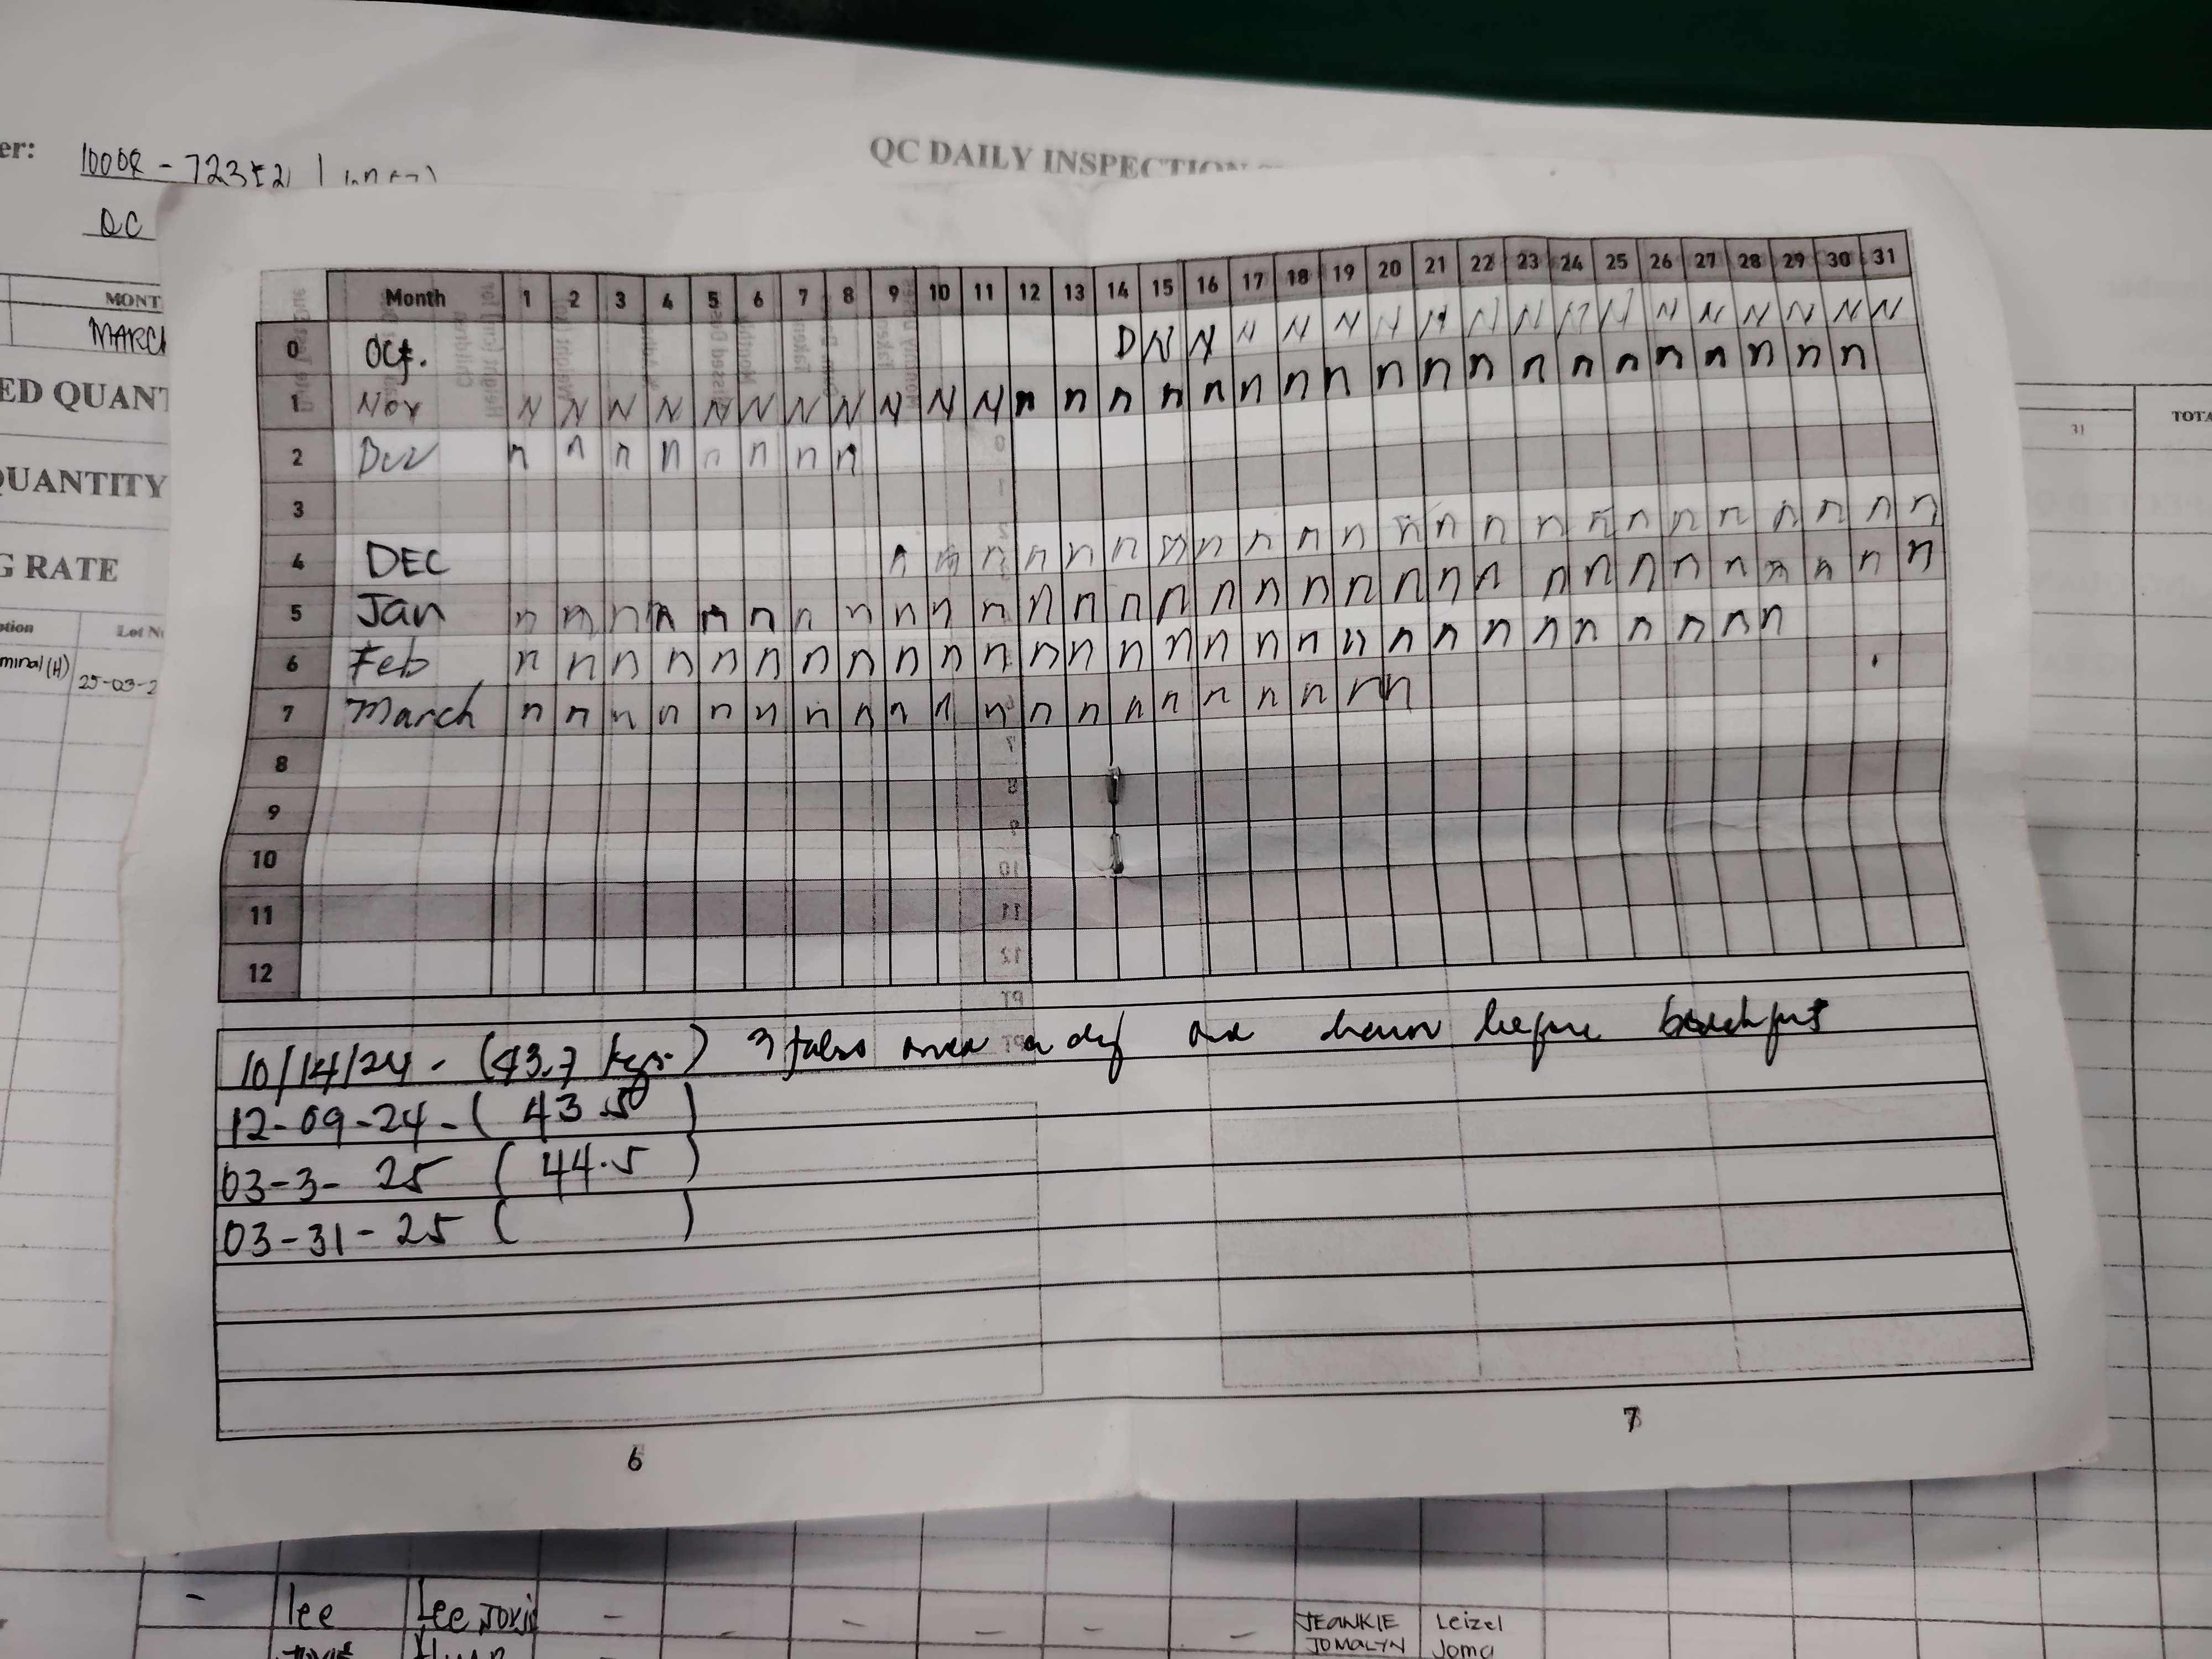 er: 10008 - 723
QC DAILY INSPECTION
QC
MONT
MARCH
ED QUANT
QUANTITY
G RATE
Lot N
minal (H) 25-03-2
31 TOTA
Month 1 2 3 4 5 6 7 8 9 10 11 12 13 14 15 16 17 18 19 20 21 22 23 24 25 26 27 28 29 30 31
0 Oct. D N N N N N N N N N N N N N N N N N
1 Nov N N N N N N N N N N N n n n n n n n n n n n n n n n n n n n
2 Dec n n n n n n n n
3
4 DEC n n n n n n n n n n n n n n n n n n n n n n n
5 Jan n n n n n n n n n n n n n n n n n n n n n n n n n n n n n n n
6 Feb n n n n n n n n n n n n n n n n n n n n n n n n n n n n
7 March n n n n n n n n n n n n n n n n n n n n
8
9
10
11
12
10/14/24 - (43.7 kgs.) 3 tabs once a day one hour before breakfast
12-09-24 - ( 43.5 )
03-3- 25 ( 44.5 )
03-31-25 ( )
6 7
- lee Lee Jovis - - - - - - JEANKIE Leizel
JOMALYN Joma